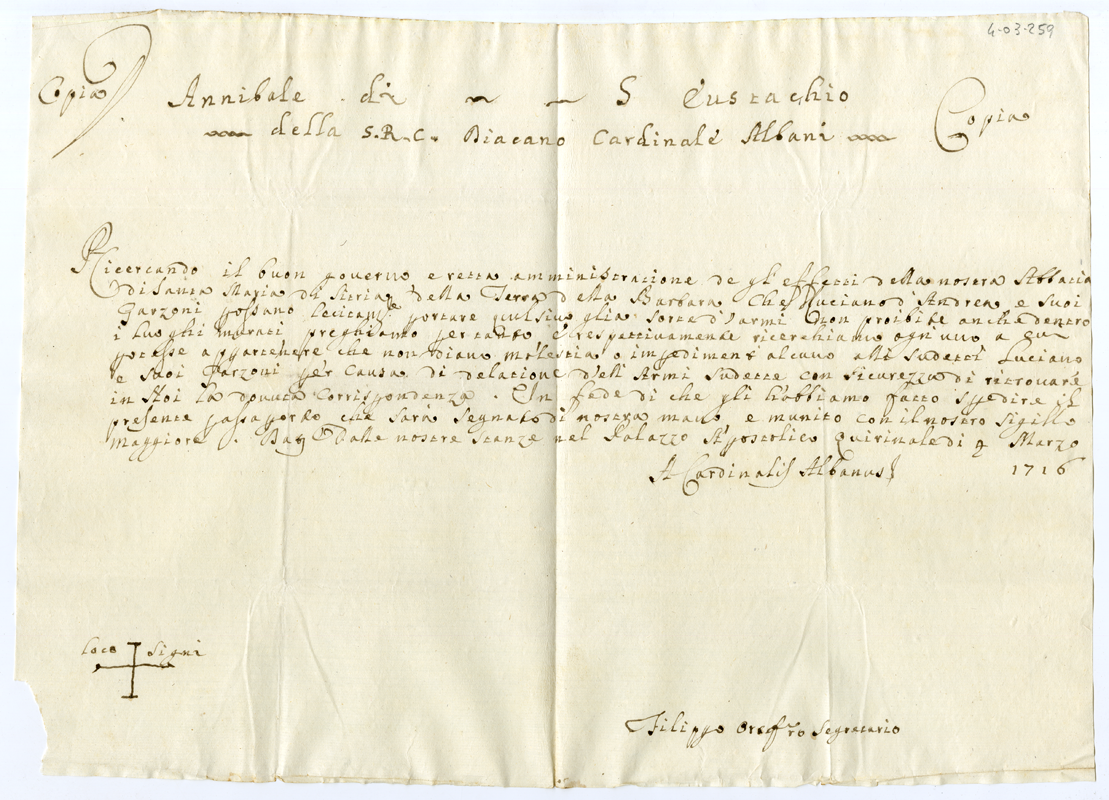 4-03-259
Copia Annibale di S Eustachio Copia
della S.R.C. Diacano Cardinale Albani
Ricercando il buon governo e retta amministracione de gl'effetti della nostra Abbatia
di Santa Maria di Sitria della Terra della Barbara Che Luciano d'Andrea e suoi
Garzoni possano lecitam.te portare qualsivoglia sorte d'armi non proibite anche dentro
i luoghi murati preghiamo pertanto e respettivamente ricerchiamo ogn'uno a cui
potesse appartenere che non diano molestia o impediment' alcuno alli sudetti Luciano
e suoi Garzoni per causa di delatione dell' Armi sudette con sicurezza di ritrovare
in Noi la dovuta corrispondenza. In fede di che gli habbiamo fatto spedire il
presente passaporto che sarà segnato di nostra mano e munito con il nostro Sigillo
maggiore. Dalle nostre stanze nel Palazzo Apostolico Quirinale di 9 Marzo
A Cardinalis Albanus 1716
Loco Signi
Filippo Segretario